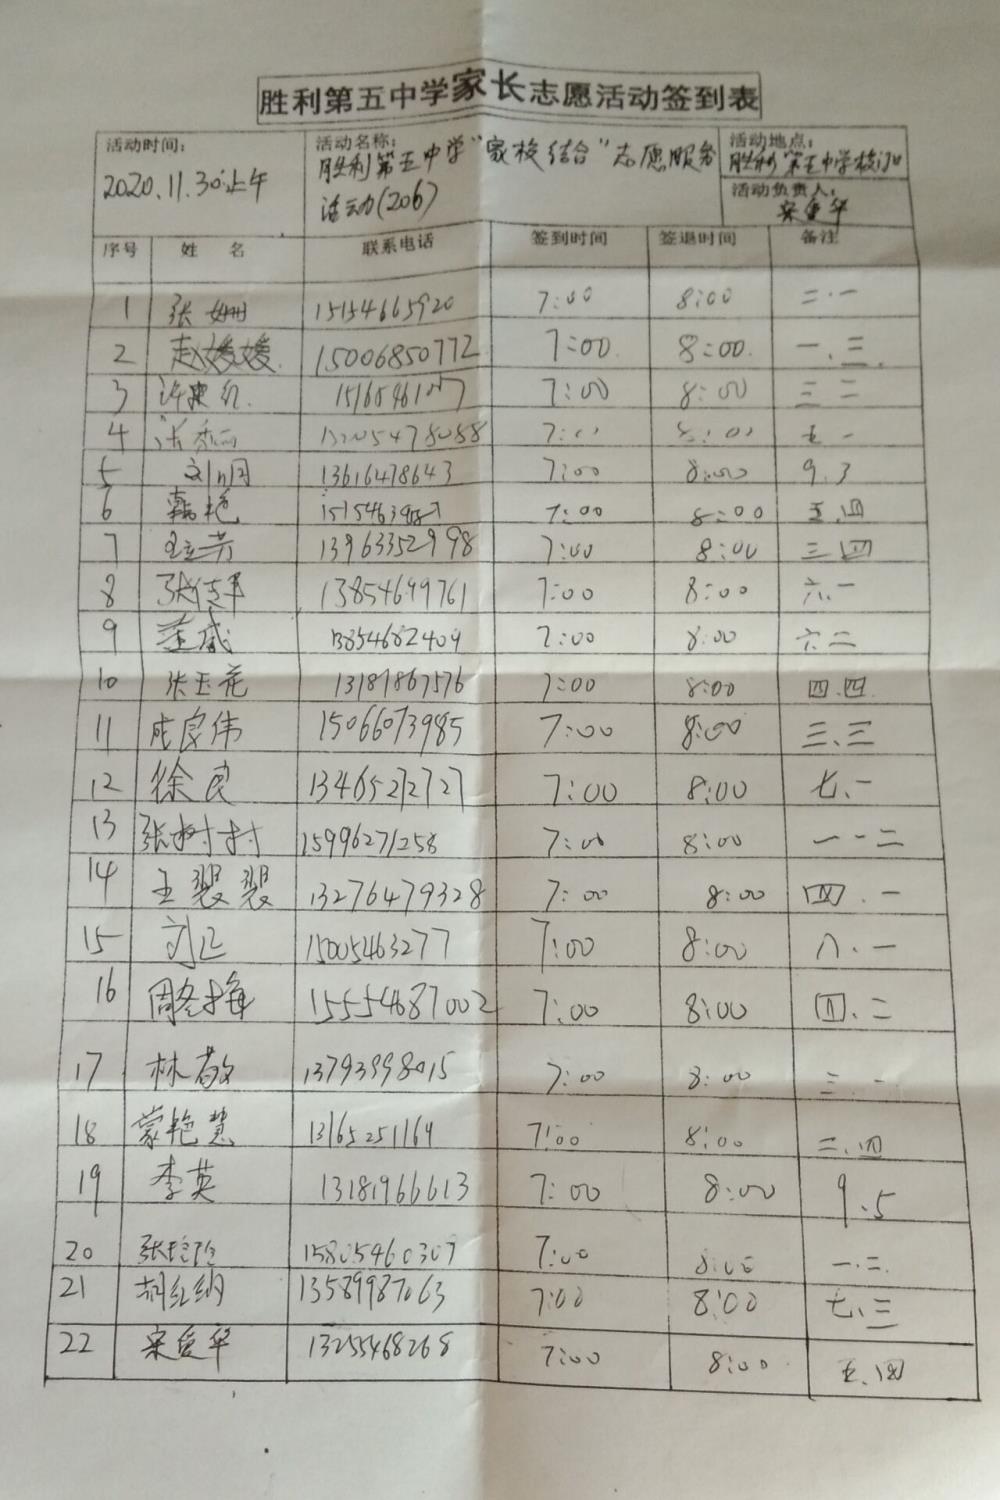 胜利第五中学家长志愿活动签到表
活动时间：
2020.11.30上午
活动名称：
胜利第五中学"家校结合"志愿服务
活动(206)
活动地点：
胜利第五中学校门口
活动负责人：
宋爱华
序号 姓 名 联系电话 签到时间 签退时间 备注
1 张姗 15154665920 7:00 8:00 二.一
2 赵媛媛 15006850772 7:00 8:00 一.三
3 许建红 7:00 8:00 三 二
4 7:00 8:00 五 一
5 13616478643 7:00 8:00 9.3
6 韩艳 7:00 8:00 五.四
7 13963352998 7:00 8:00 三 四
8 13854649761 7:00 8:00 六.一
9 13854682409 7:00 8:00 六 二
10 张玉花 13181867576 7:00 8:00 四.四
11 成良伟 15066073985 7:00 8:00 三.三
12 徐良 13465272727 7:00 8:00 七.一
13 张树村 15996271258 7:00 8:00 一.二
14 王翠翠 13276479328 7:00 8:00 四.一
15 刘正 15005463277 7:00 8:00 八.一
16 周冬梅 15554687002 7:00 8:00 四.二
17 林敬 13793998015 7:00 8:00 三.一
18 蒙艳慧 13165251164 7:00 8:00 二.四
19 李英 13181966613 7:00 8:00 9.5
20 15805460307 7:00 8:00 一.二
21 胡红纳 13589987063 7:00 8:00 七.三
22 宋爱华 13255468268 7:00 8:00 五.四